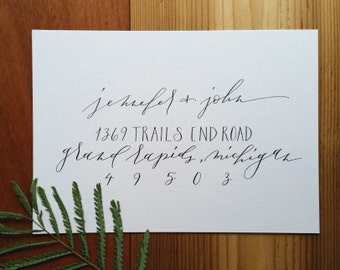 jennifer + john
1369 TRAILS END ROAD
grand rapids, michigan
4 9 5 0 3